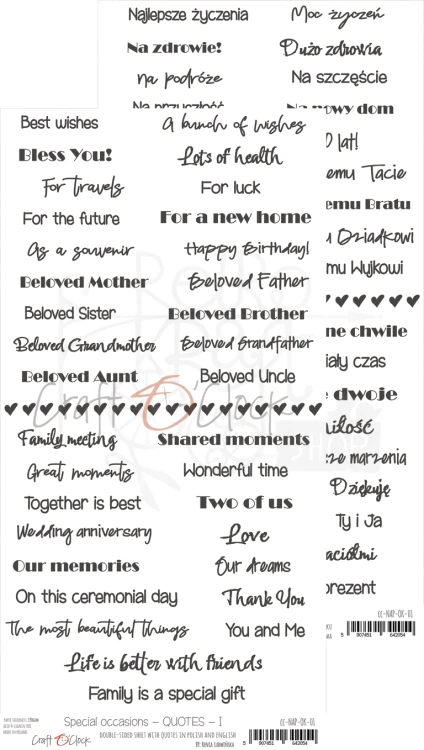 Najlepsze życzenia Moc życzeń
Na zdrowie! Dużo zdrowia
na podróże Na szczęście
Na przyszłość Na nowy dom
Best wishes A bunch of wishes
Bless You! Lots of health
For travels For luck
For the future For a new home
As a souvenir Happy Birthday!
Beloved Mother Beloved Father
Beloved Sister Beloved Brother
Beloved Grandmother Beloved Grandfather
Beloved Aunt Beloved Uncle
Craft O'Clock
Family meeting Shared moments
Great moments Wonderful time
Together is best Two of us
Wedding anniversary Love
Our memories Our dreams
On this ceremonial day Thank You
The most beautiful things You and Me
Life is better with friends
Family is a special gift
Special occasions – QUOTES – I cc-NAP-OK-01
Craft O'Clock DOUBLE-SIDED SHEET WITH QUOTES IN POLISH AND ENGLISH
5 907451 642054
lat!
Tacie
Bratu
Dziadkowi
Wujkowi
chwile
czas
dwoje
marzenia
Dziękuję
Ty i Ja
cc-NAP-OK-01
642054